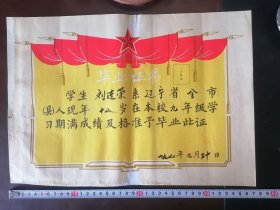 毕业证书
学生 刘连荣 系辽宁省 金 市
(县)人现年 十八 岁在本校九年级学
习期满成绩及格准予毕业此证
一九七 年 七 月 廿 日